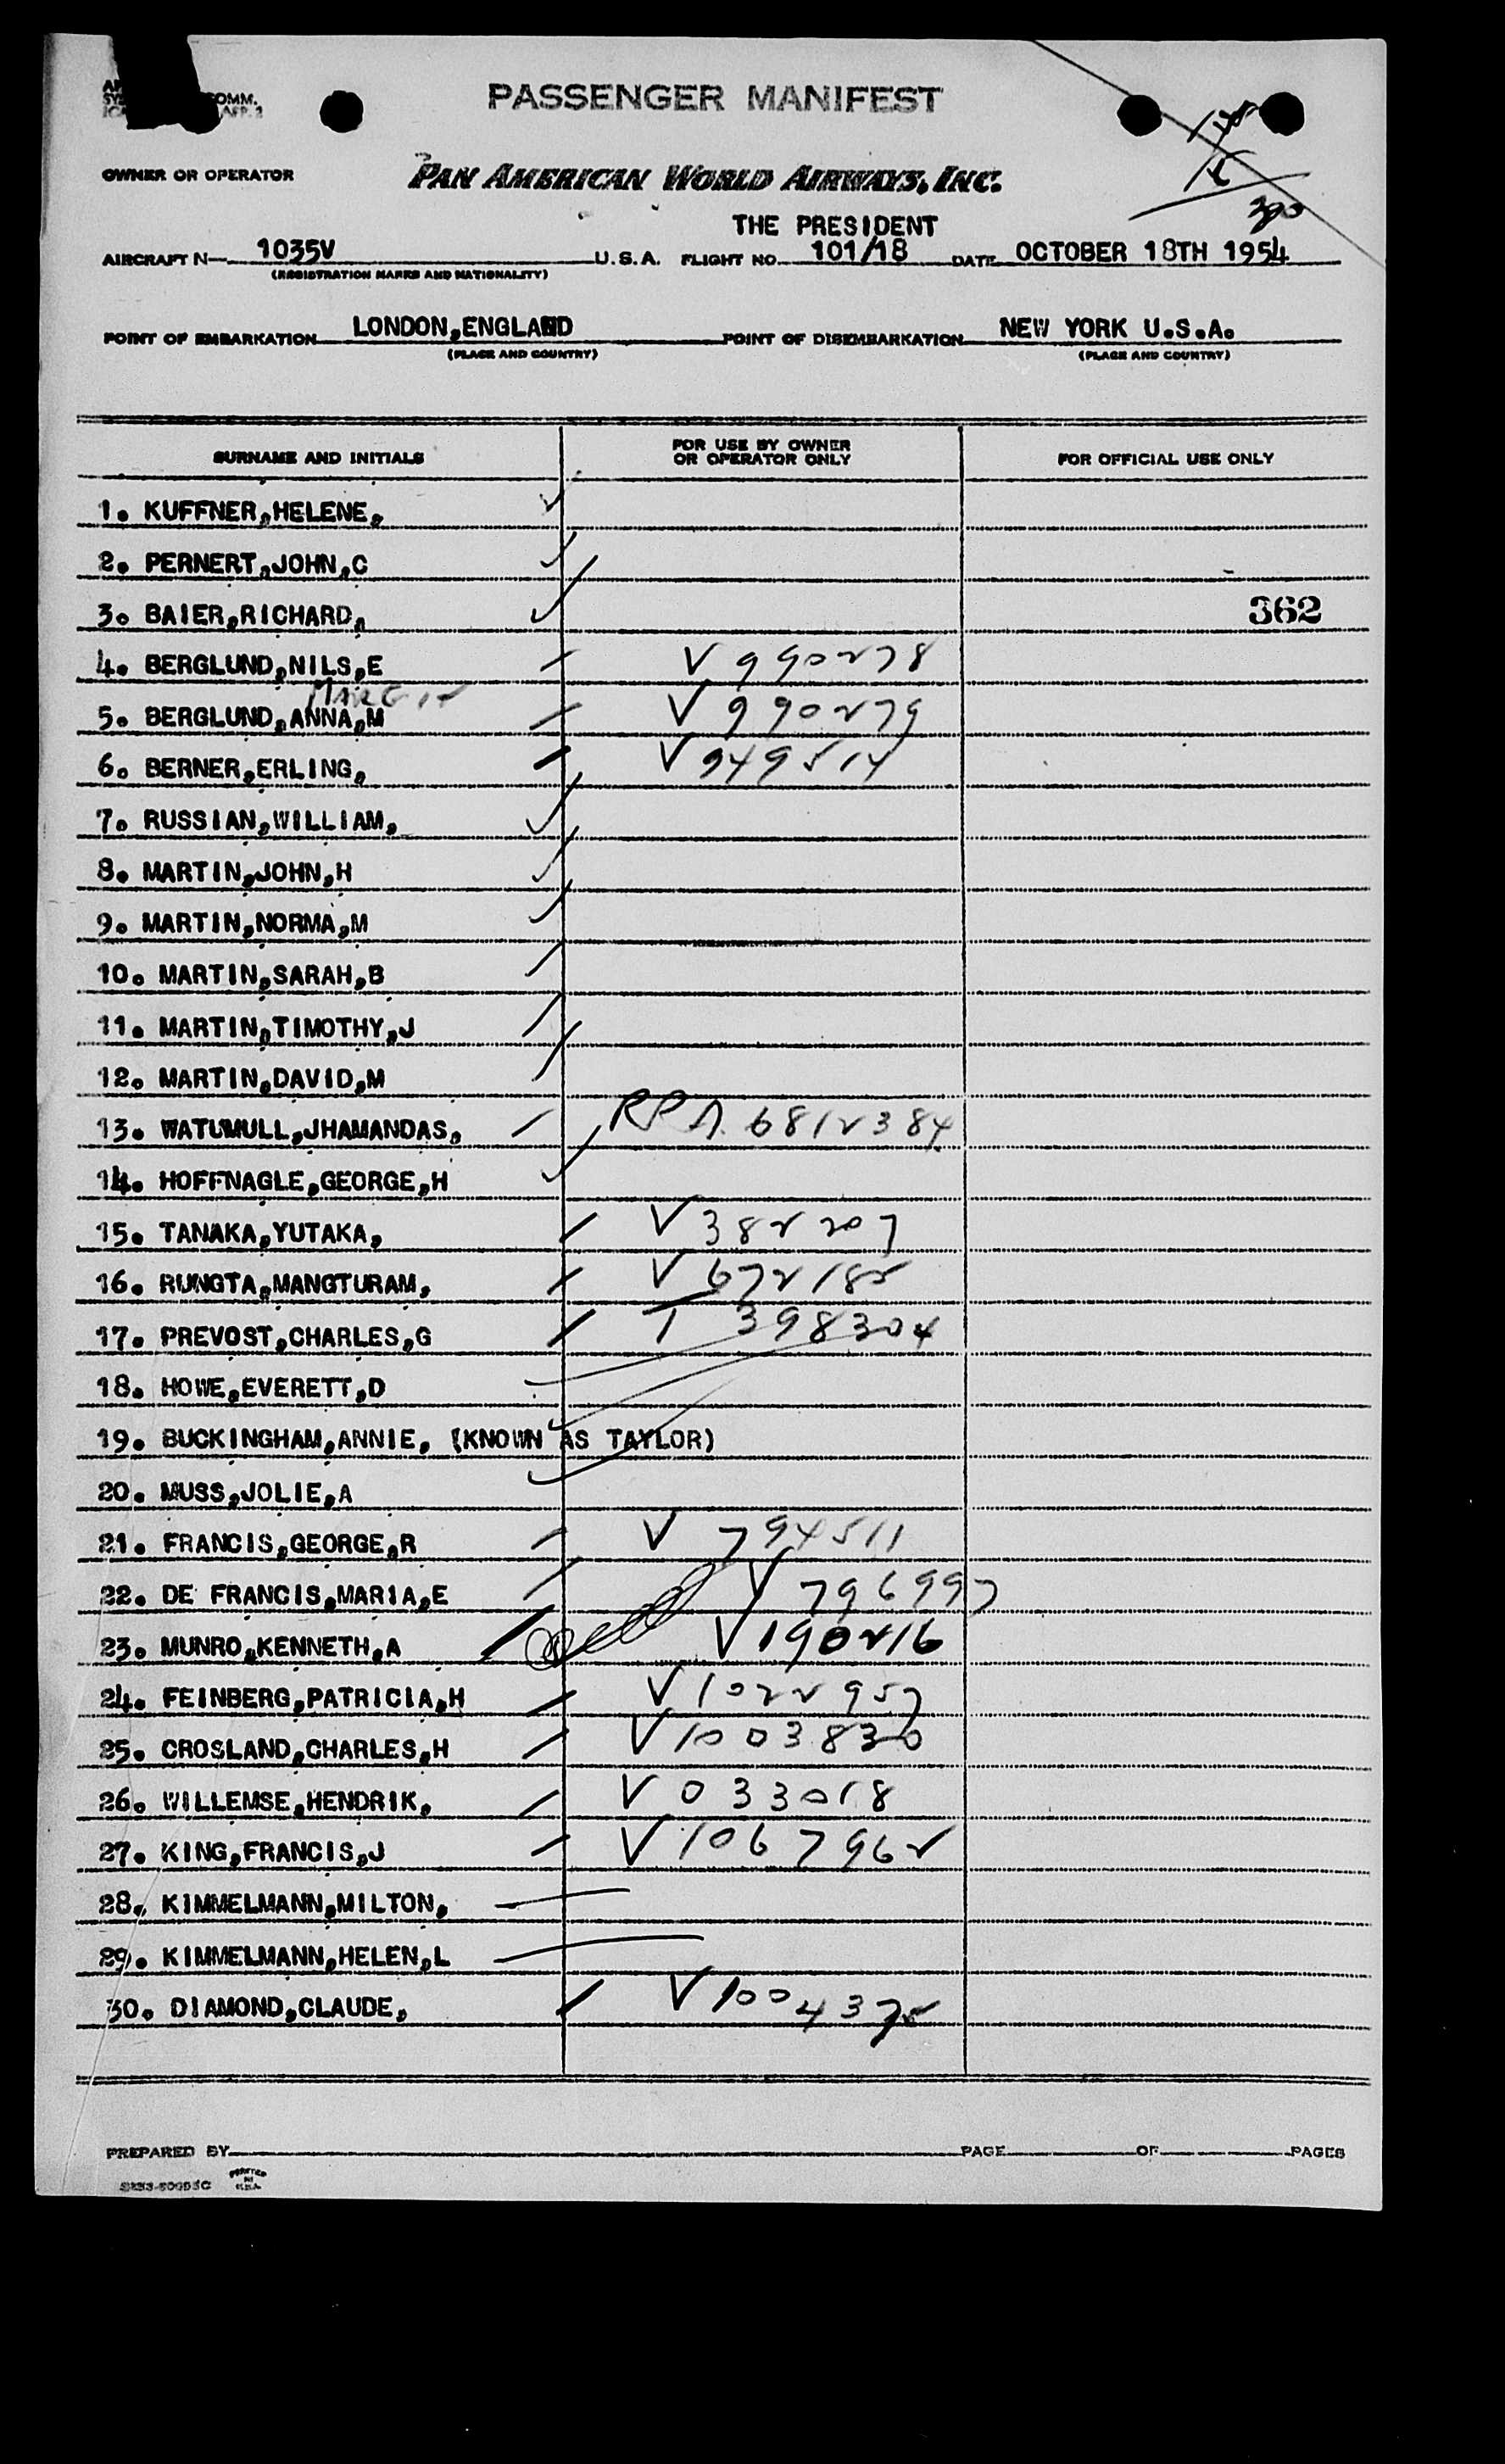 PASSENGER MANIFEST
OWNER OR OPERATOR PAN AMERICAN WORLD AIRWAYS, INC.
THE PRESIDENT
AIRCRAFT N- 1035V U.S.A. FLIGHT NO. 101/18 DATE OCTOBER 18TH 1954
(REGISTRATION MARKS AND NATIONALITY)
POINT OF EMBARKATION LONDON,ENGLAND POINT OF DISEMBARKATION NEW YORK U.S.A.
(PLACE AND COUNTRY) (PLACE AND COUNTRY)
SURNAME AND INITIALS FOR USE BY OWNER OR OPERATOR ONLY FOR OFFICIAL USE ONLY
1. KUFFNER,HELENE,
2. PERNERT,JOHN,C
3. BAIER,RICHARD, 362
4. BERGLUND,NILS,E V 990278
MARGIT
5. BERGLUND,ANNA,M V 990279
6. BERNER,ERLING, V 949514
7. RUSSIAN,WILLIAM,
8. MARTIN,JOHN,H
9. MARTIN,NORMA,M
10. MARTIN,SARAH,B
11. MARTIN,TIMOTHY,J
12. MARTIN,DAVID,M
13. WATUMULL,JHAMANDAS, 6812384
14. HOFFNAGLE,GEORGE,H
15. TANAKA,YUTAKA, V 382207
16. RUNGTA,MANGTURAM, V 672182
17. PREVOST,CHARLES,G T 398304
18. HOWE,EVERETT,D
19. BUCKINGHAM,ANNIE, (KNOWN AS TAYLOR)
20. MUSS,JOLIE,A
21. FRANCIS,GEORGE,R V 794511
22. DE FRANCIS,MARIA,E V 796997
23. MUNRO,KENNETH,A V 190216
24. FEINBERG,PATRICIA,H V 1022957
25. CROSLAND,CHARLES,H V 1003830
26. WILLEMSE,HENDRIK, V 033018
27. KING,FRANCIS,J V 1067962
28. KIMMELMANN,MILTON,
29. KIMMELMANN,HELEN,L
30. DIAMOND,CLAUDE, V 1004372
PREPARED BY PAGE OF PAGES
PRINTED IN U.S.A.